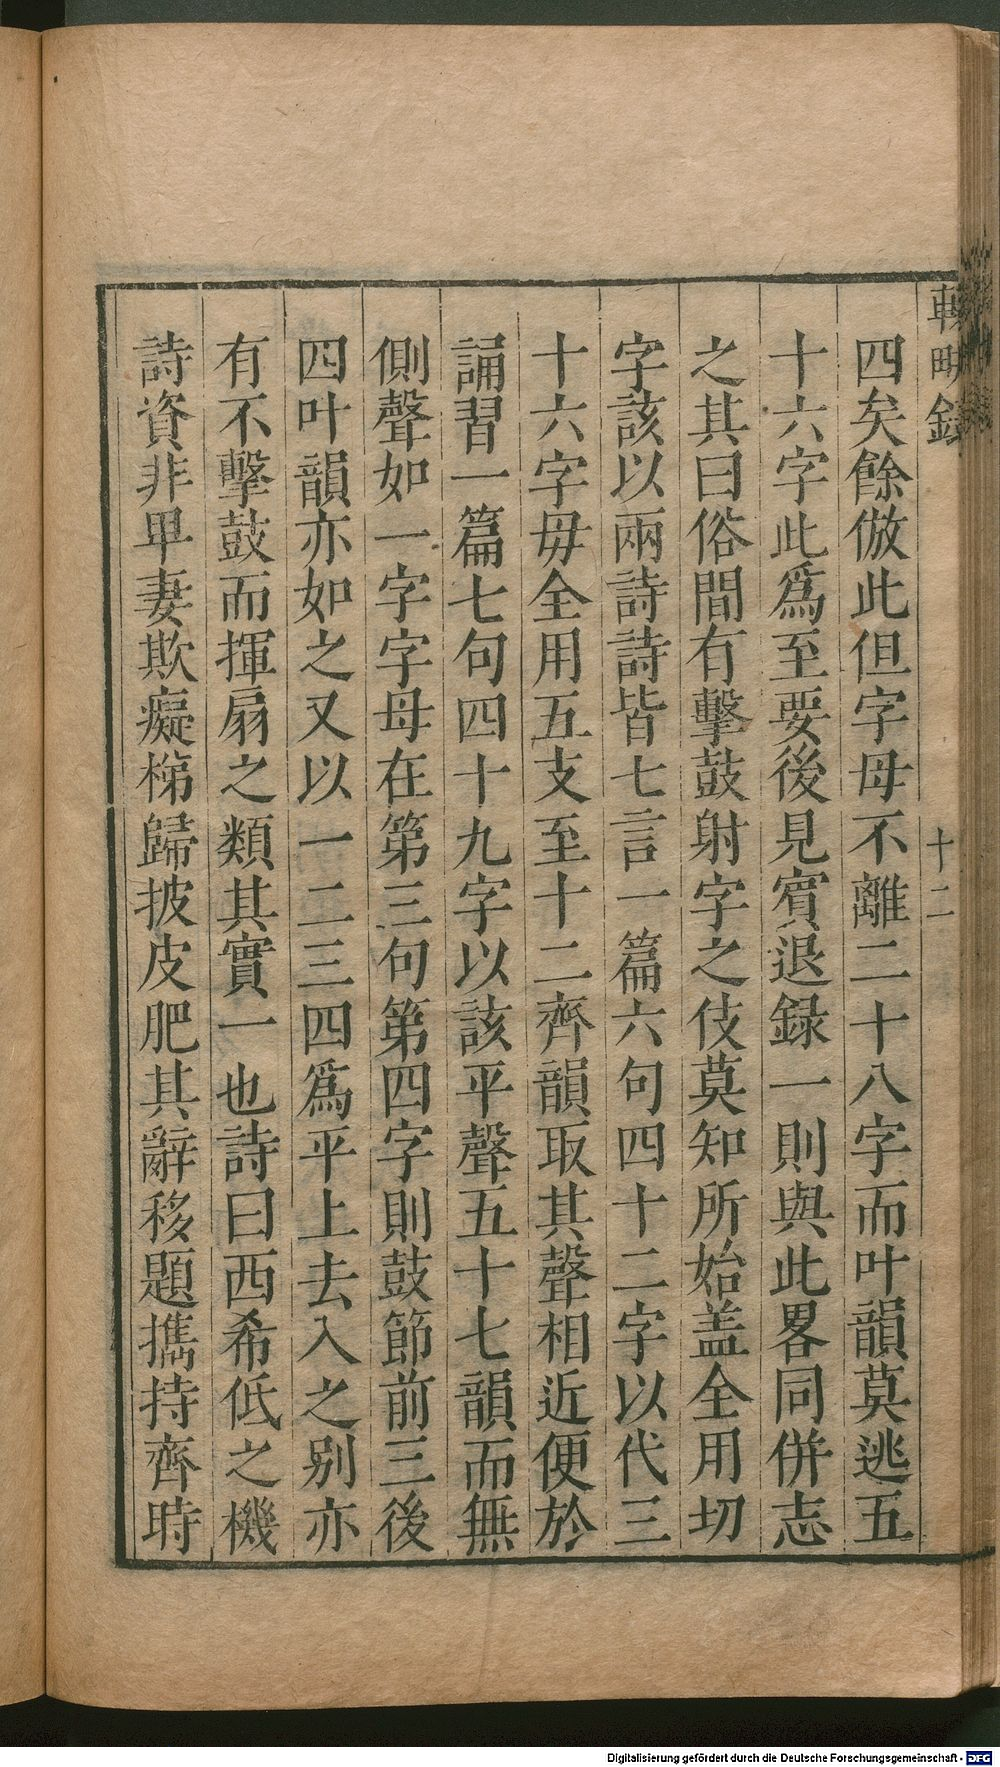 畊録
十二
四矣餘倣此但字母不離二十八字而叶韻莫逃五
十六字此爲至要後見賔退録一則與此畧同併志
之其曰俗間有擊鼓射字之伎莫知所始盖全用切
字該以兩詩詩皆七言一篇六句四十二字以代三
十六字毋全用五支至十二齊韻取其聲相近便於
誦習一篇七句四十九字以該平聲五十七韻而無
側聲如一字字母在第三句第四字則鼓節前三後
四叶韻亦如之又以一二三四爲平上去入之别亦
有不擊鼓而揮扇之類其實一也詩曰西希低之機
詩資非卑妻欺癡梯歸披皮肥其辭移題攜持齊時
Digitalisierung gefördert durch die Deutsche Forschungsgemeinschaft - DFG